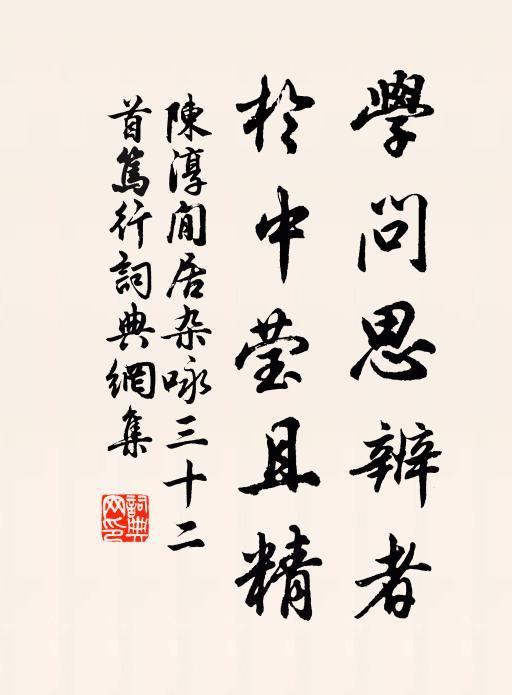 學問思辨者
於中莹且精
陳淳閒居杂咏三十二
首篤行詞典網集
詞典网印